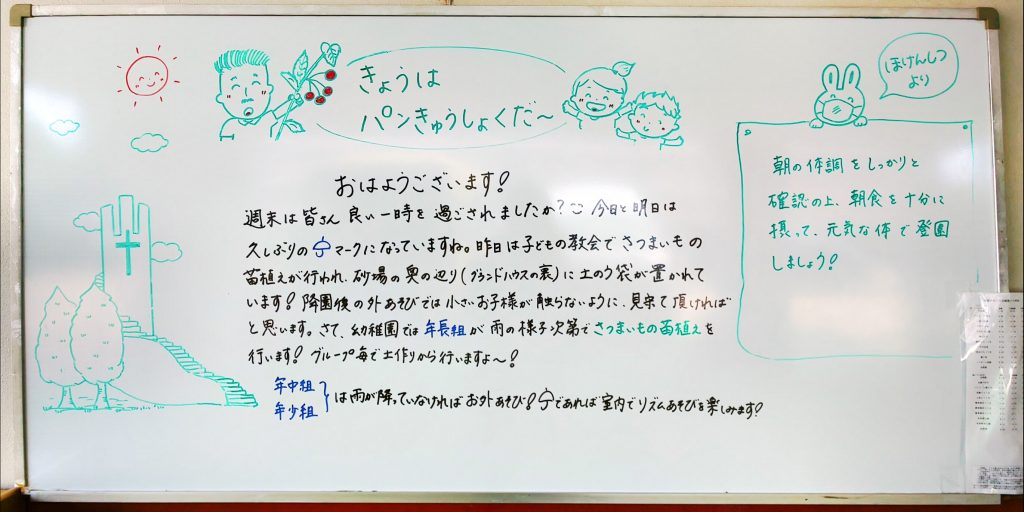 きょうは
パンきゅうしょくだ〜
ほけんしつ
より
おはようございます!
週末は皆さん 良い一時を過ごされましたか? 今日と明日は
久しぶりの マークになっていますね。昨日は子どもの教会でさつまいもの
苗植えが行われ、砂場の奥の辺り(グランドハウスの裏)に土のう袋が置かれて
います! 降園後の外あそびでは小さいお子様が触らないように、見守って頂ければ
と思います。さて、幼稚園では 年長組が 雨の様子次第でさつまいもの苗植えを
行います! グループ毎で土作りから行いますよ〜!
年中組
年少組
は雨が降っていなければお外あそび! であれば室内でリズムあそびを楽しみます!
朝の体調をしっかりと
確認の上、朝食を十分に
摂って、元気な体で登園
しましょう!